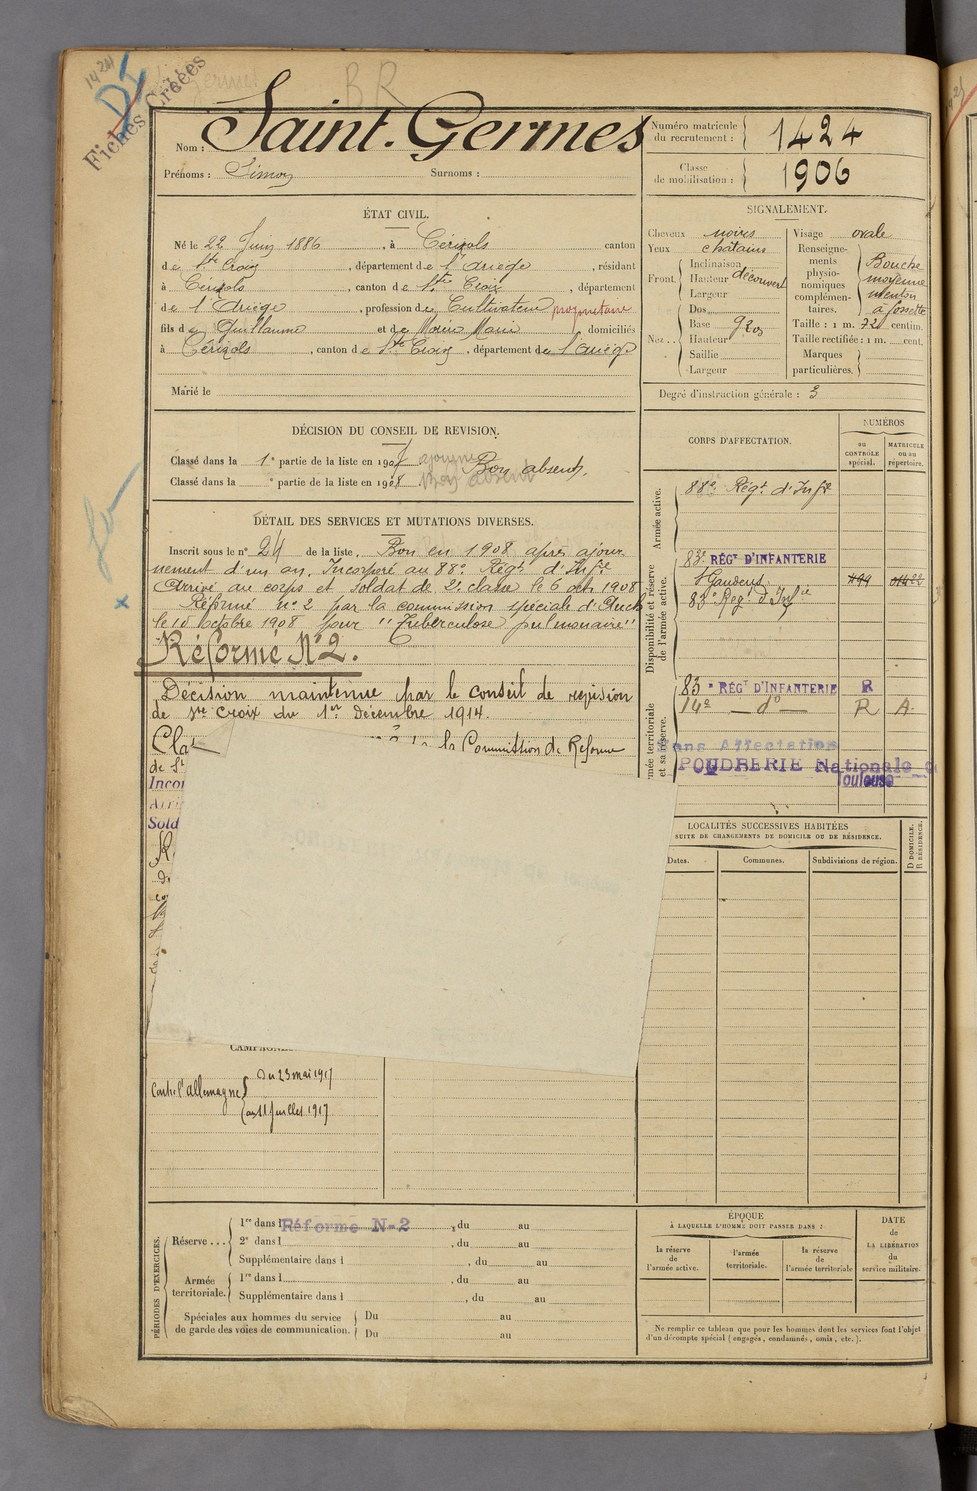 1424
BR
Fiches Créées
Nom : Saint-Germes
Prénoms : Simon Surnoms :
Numéro matricule du recrutement : 1424
Classe de mobilisation : 1906
ÉTAT CIVIL.
Né le 22 Juin 1886, à Cérizols canton
de Ste Croix, département de l'Ariège, résidant
à Cérizols, canton de Ste Croix, département
de l'Ariège, profession de Cultivateur propriétaire
fils de Guillaume et de Marie domiciliés
à Cérizols, canton de Ste Croix, département de l'Ariège
Marié le
SIGNALEMENT.
Cheveux noirs
Yeux chatains
Front. Inclinaison
Hauteur découvert
Largeur
Nez.. Dos
Base
Hauteur
Saillie
Largeur
Visage ovale
Renseignements physionomiques complémentaires. Bouche moyenne menton à fossette
Taille : 1 m. 72 centim.
Taille rectifiée : 1 m. cent.
Marques particulières.
Degré d'instruction générale : 3
DÉCISION DU CONSEIL DE REVISION.
Classé dans la 1e partie de la liste en 1907 ajourné Bon absent.
Classé dans la e partie de la liste en 1908 Bon absent
DÉTAIL DES SERVICES ET MUTATIONS DIVERSES.
Inscrit sous le n° 24 de la liste. Bon en 1908 après ajour
nement d'un an. Incorporé au 88e Régt d'Infie
Arrivé au corps et soldat de 2e classe le 6 oct. 1908
Réformé n° 2 par la commission spéciale d'Auch
le 10 octobre 1908 pour "Tuberculose pulmonaire"
Réformé N° 2.
Décision maintenue par le conseil de revision
de Ste Croix du 1er Décembre 1914.
Cla la Commission de Reforme
de St
Incor
Arri
Sold
CORPS D'AFFECTATION.
NUMÉROS
au CONTRÔLE spécial.
MATRICULE ou au répertoire.
Armée active.
88e Régt d'Infie
Disponibilité et réserve de l'armée active.
83e RÉGT D'INFANTERIE
St Gaudens
83e Régt d'Infie
Armée territoriale et sa réserve.
83e RÉGT D'INFANTERIE R
14e — d° — R A
Sans Affectation
POUDRERIE Nationale de
Toulouse
LOCALITÉS SUCCESSIVES HABITÉES
SUITE DE CHANGEMENTS DE DOMICILE OU DE RÉSIDENCE.
Dates.
Communes.
Subdivisions de région.
D DOMICILE.
R RÉSIDENCE.
CAMPAGNE
Contre l'allemagne
Du 23 mai 1917
au 11 Juillet 1917
PÉRIODES D'EXERCICES.
Réserve ...
1re dans l Réforme N-2, du au
2e dans l , du au
Supplémentaire dans l , du au
Armée territoriale.
1re dans l , du au
Supplémentaire dans l , du au
Spéciales aux hommes du service de garde des voies de communication.
Du au
Du au
ÉPOQUE
À LAQUELLE L'HOMME DOIT PASSER DANS :
la réserve de l'armée active.
l'armée territoriale.
la réserve de l'armée territoriale
DATE DE LA LIBÉRATION du service militaire.
Ne remplir ce tableau que pour les hommes dont les services font l'objet
d'un décompte spécial (engagés, condamnés, omis, etc.).